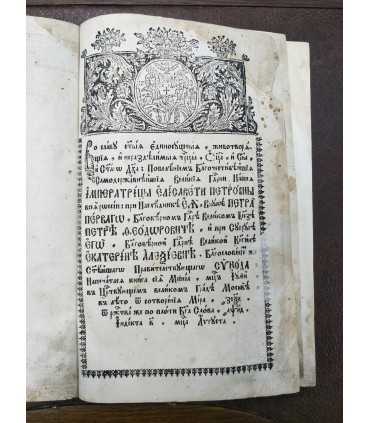 Во славу ст҃ыѧ Единосущныѧ , животворѧ
щїѧ , и нераздѣлимыѧ трⷪ҇цы , Ѻц҃а , и Сн҃а ,
и Ст҃агѡ Дх҃а : Повелѣнїемъ Бл҃гочестивѣйшїѧ
Самодержавнѣйшїѧ Великїѧ Гдⷭ҇рни Нашеѧ
ІМПЕРАТРИЦЫ ЕЛИСАВЕТЫ ПЕТРОВНЫ
всеѧ рѡссїи : при Наслѣдникѣ ЕѦ , Внукѣ ПЕТРА
ПЕРВАГѠ , Бл҃говѣрномъ Гдⷭ҇рѣ Великомъ Кнѧзѣ
ПЕТРѢ ѲЕОДОРОВИЧѢ , и при Сꙋпрꙋгѣ
ЕГѠ , Бл҃говѣрной Гдⷭ҇рнѣ Великой Кнѧгинѣ
ЕКАТЕРИНѢ АЛЕѮІЕВНѢ , Бл҃гословенїемъ
Ст҃ѣйшагѡ Правителствꙋющагѡ СѴНОДА
Напечатасѧ книга сїѧ Минїа , мцⷭ҇ъ
въ Цртⷭ҇вꙋющемъ великомъ Градѣ Москвѣ
въ лѣто ѿ сотворенїѧ Мїра ,
ѿ ржⷭ҇тва же по плоти Бг҃а Слова ,
Індїкта мцⷭ҇а Аѵгꙋста